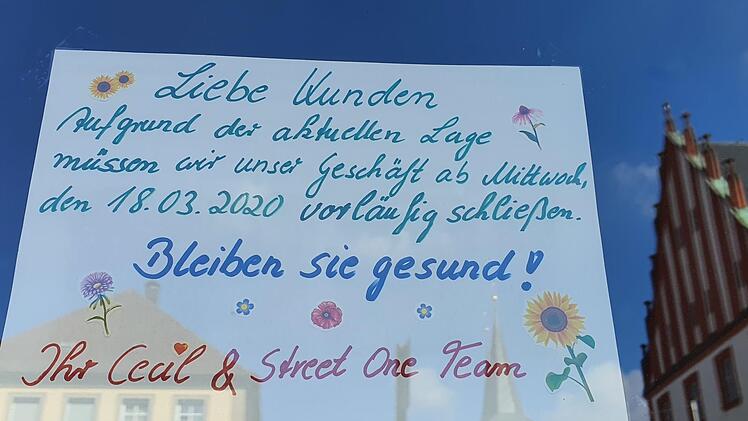 Liebe Kunden
Aufgrund der aktuellen Lage
müssen wir unser Geschäft ab Mittwoch,
den 18.03.2020 vorläufig schließen.
Bleiben sie gesund!
Ihr Cecil & Street One Team